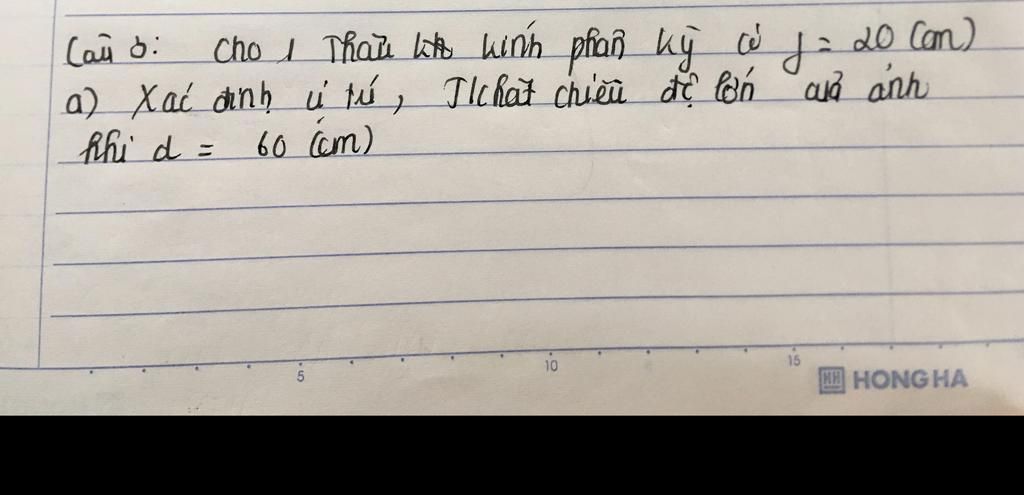 Câu 5: Cho 1 Thấu kính phân kỳ có f = 20 (cm)
a) Xác định vị trí, T/chất chiều độ lớn của ảnh
khi d = 60 (cm)
5 10 15
HH HONG HA